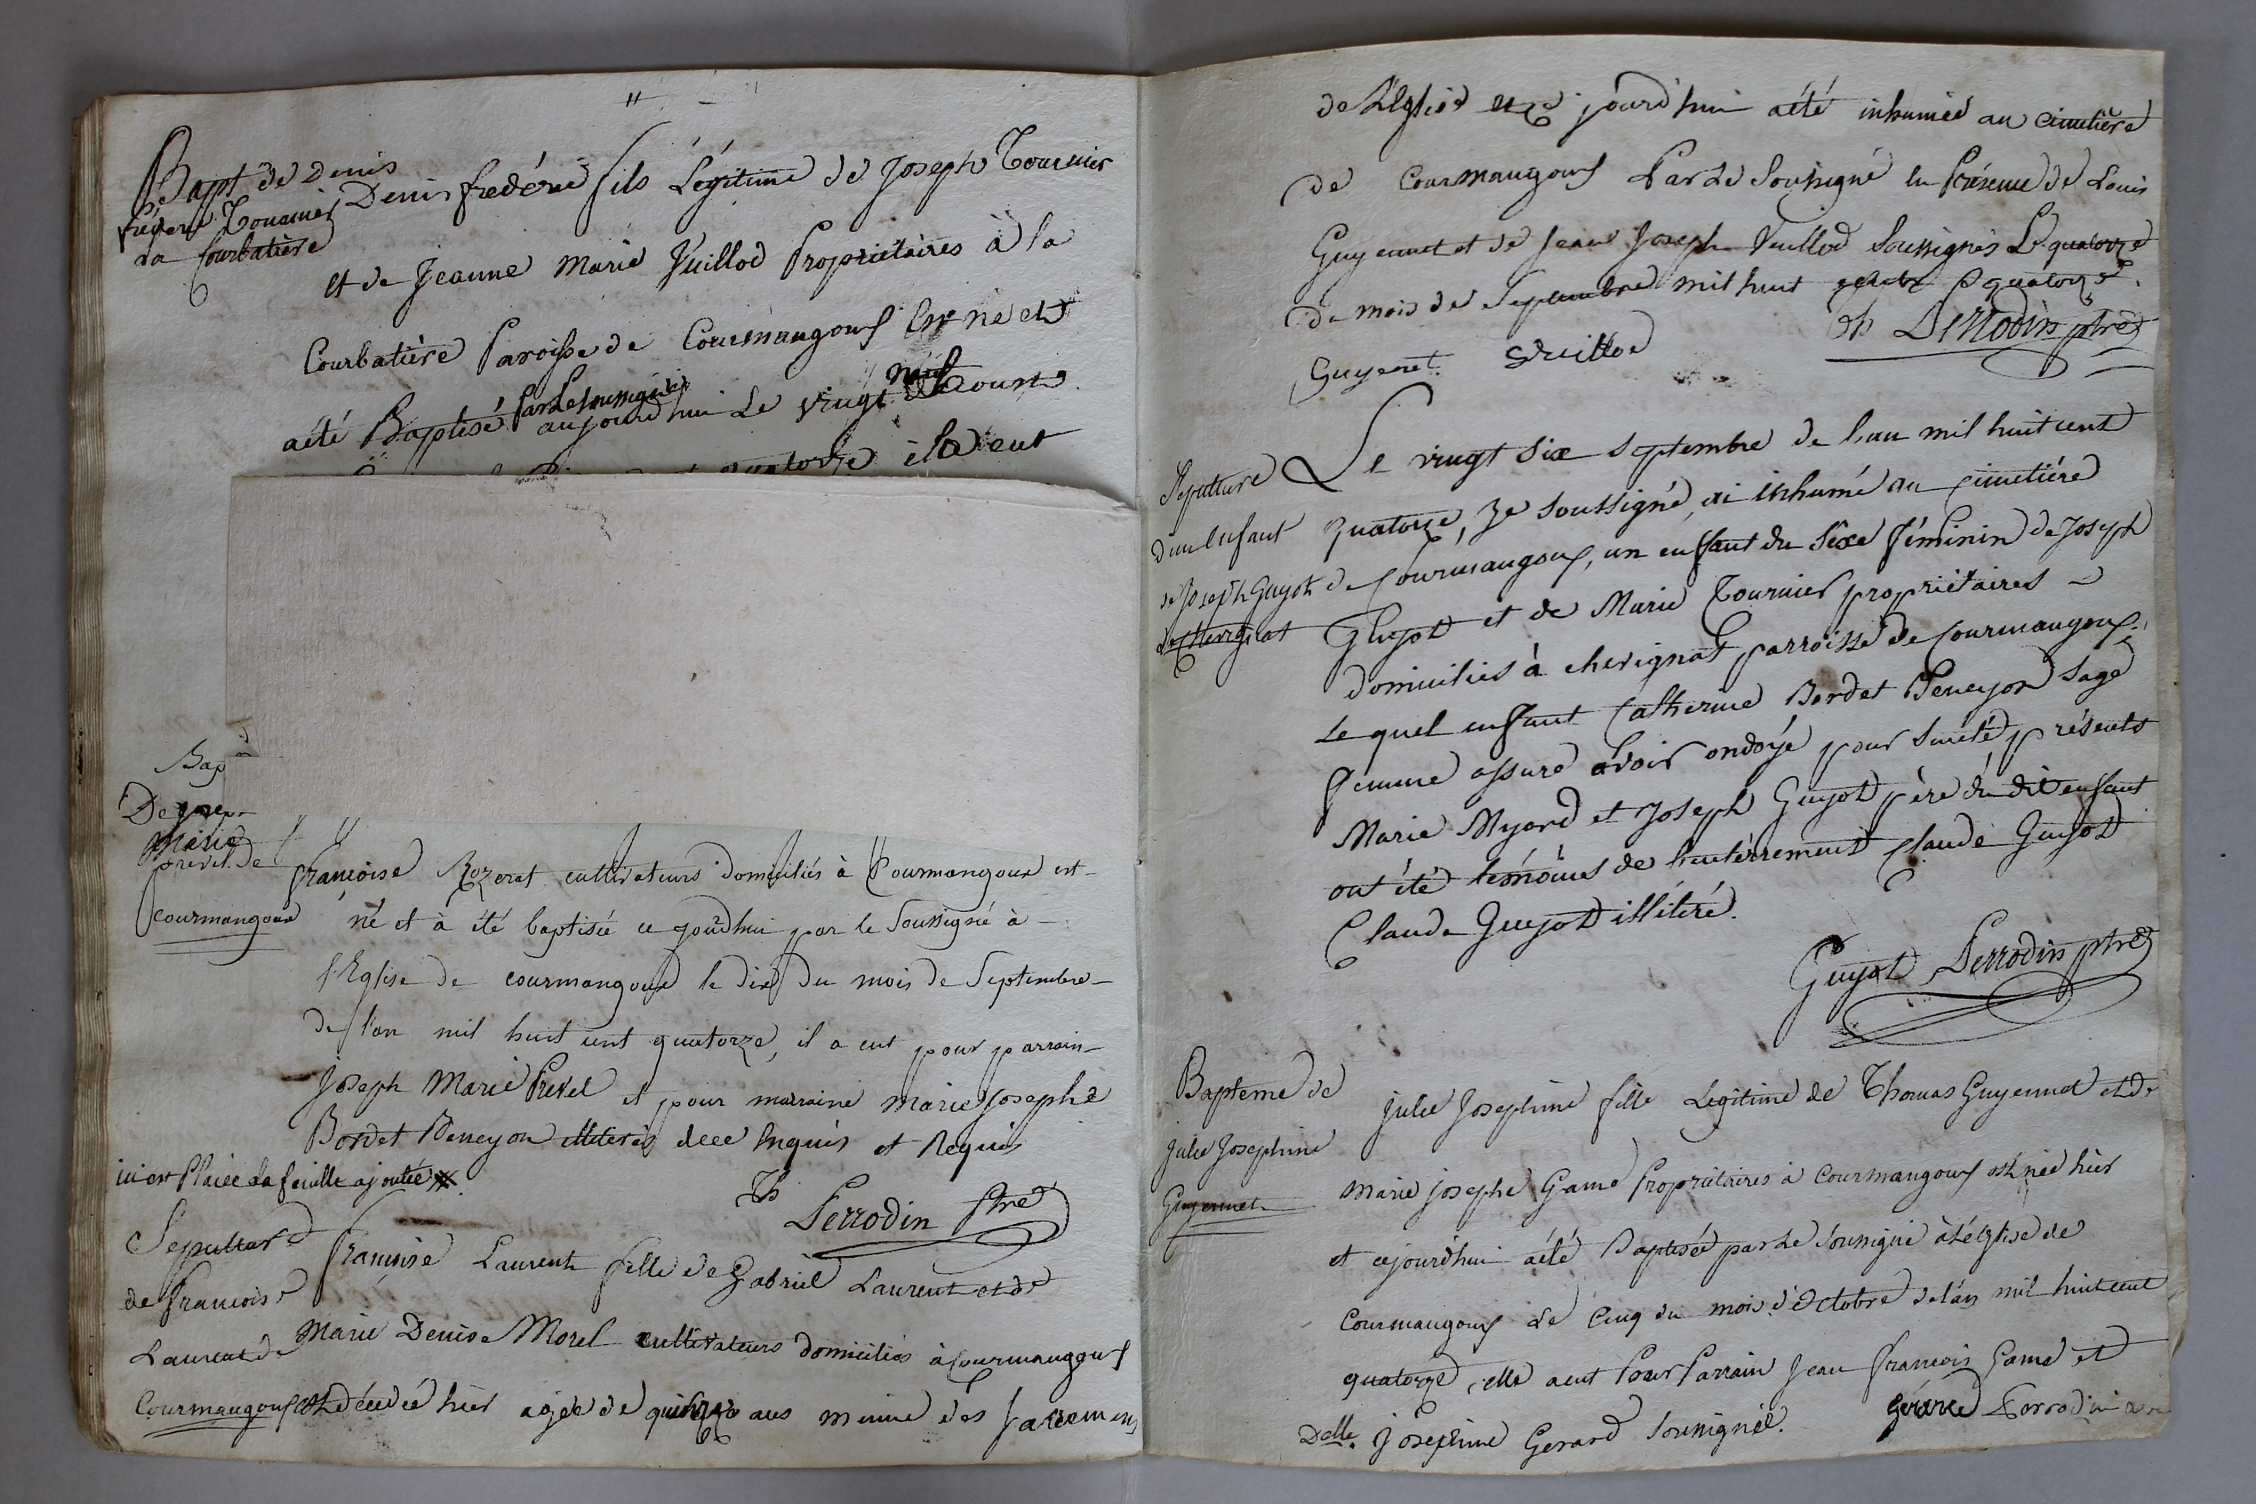 Bapt. de Denis
frédéric Tournier
La Courbatière
Denis frédéric fils Légitime de Joseph Tournier
et de Jeanne Marie Vuillod Propriétaires à la
Courbatière Paroisse de Courmangoux Est né et
par Le soussigné
neuf
aété Baptisé aujourd'hui Le vingt aoust
quatorze il a eut
Bap
De
Marie
prevel de
courmangoux
françoise Rozerat cultivateurs domiciliés à Courmangoux est
né et à été baptisée ce jourdhui par le Soussigné à
l'Eglise de courmangoux le dix du mois de Septembre
de l'an mil huit cent quatorze, il a eut pour parrain
Joseph Marie Prevel et pour marraine marie Josephe
Bordet Beneyon illiterés de ce Enquis et Requis
ici est Placée la feuille ajoutée
Ferrodin Ptre
Sepulture
de francoise
Laurent de
Courmangoux
françoise Laurent fille de Gabriel Laurent et de
Marie Denise Morel cultivateurs domiciliés à Courmangoux
est décédée hier agée de quinze ans munie des Sacremens
de L'Eglise et ce jourd'hui aété inhumée au cimetière
de Courmangoux Par Le Soussigné en Présence de Louis
Guyennet et de Jean Joseph Vuillod Soussignés Le quatorze
du mois de Septembre mil huit cent quatorze.
Guyenet Vuillod Ferrodin ptre
Sepulture
d'un Enfant
de Joseph Guyot
de Cherignat
Le vingt six septembre de l'an mil huit cent
quatorze, Je soussigné, ai inhumé au cimetière
de Courmangoux, un enfant du Sexe féminin de Joseph
Guyot et de Marie Tournier propriétaires
domiciliés à cherignat parroisse de Courmangoux;
Le quel enfant Catherine Bordet Beneyon sage
femme assure avoir ondoyé pour sureté, présents
Marie Myard et Joseph Guyot père du dit enfant
ont été témoins de l'enterrement Claude Guyot
Claude Guyot illitéré.
Guyot Ferrodin ptre
Bapteme de
Julie Josephine
Guyennet
Julie Josephine fille Légitime de Thomas Guyennet et de
Marie josephe Game Propriétaires à Courmangoux est née hier
et cejourd'hui aété Baptisée par Le Soussigné à L'église de
Courmangoux Le Cinq du mois d'Octobre de l'an mil huit cent
quatorze, elle a eut Pour Parrain Jean françois Game et
Delle. Joséphine Gerard Soussignée. Gérard Ferrodin